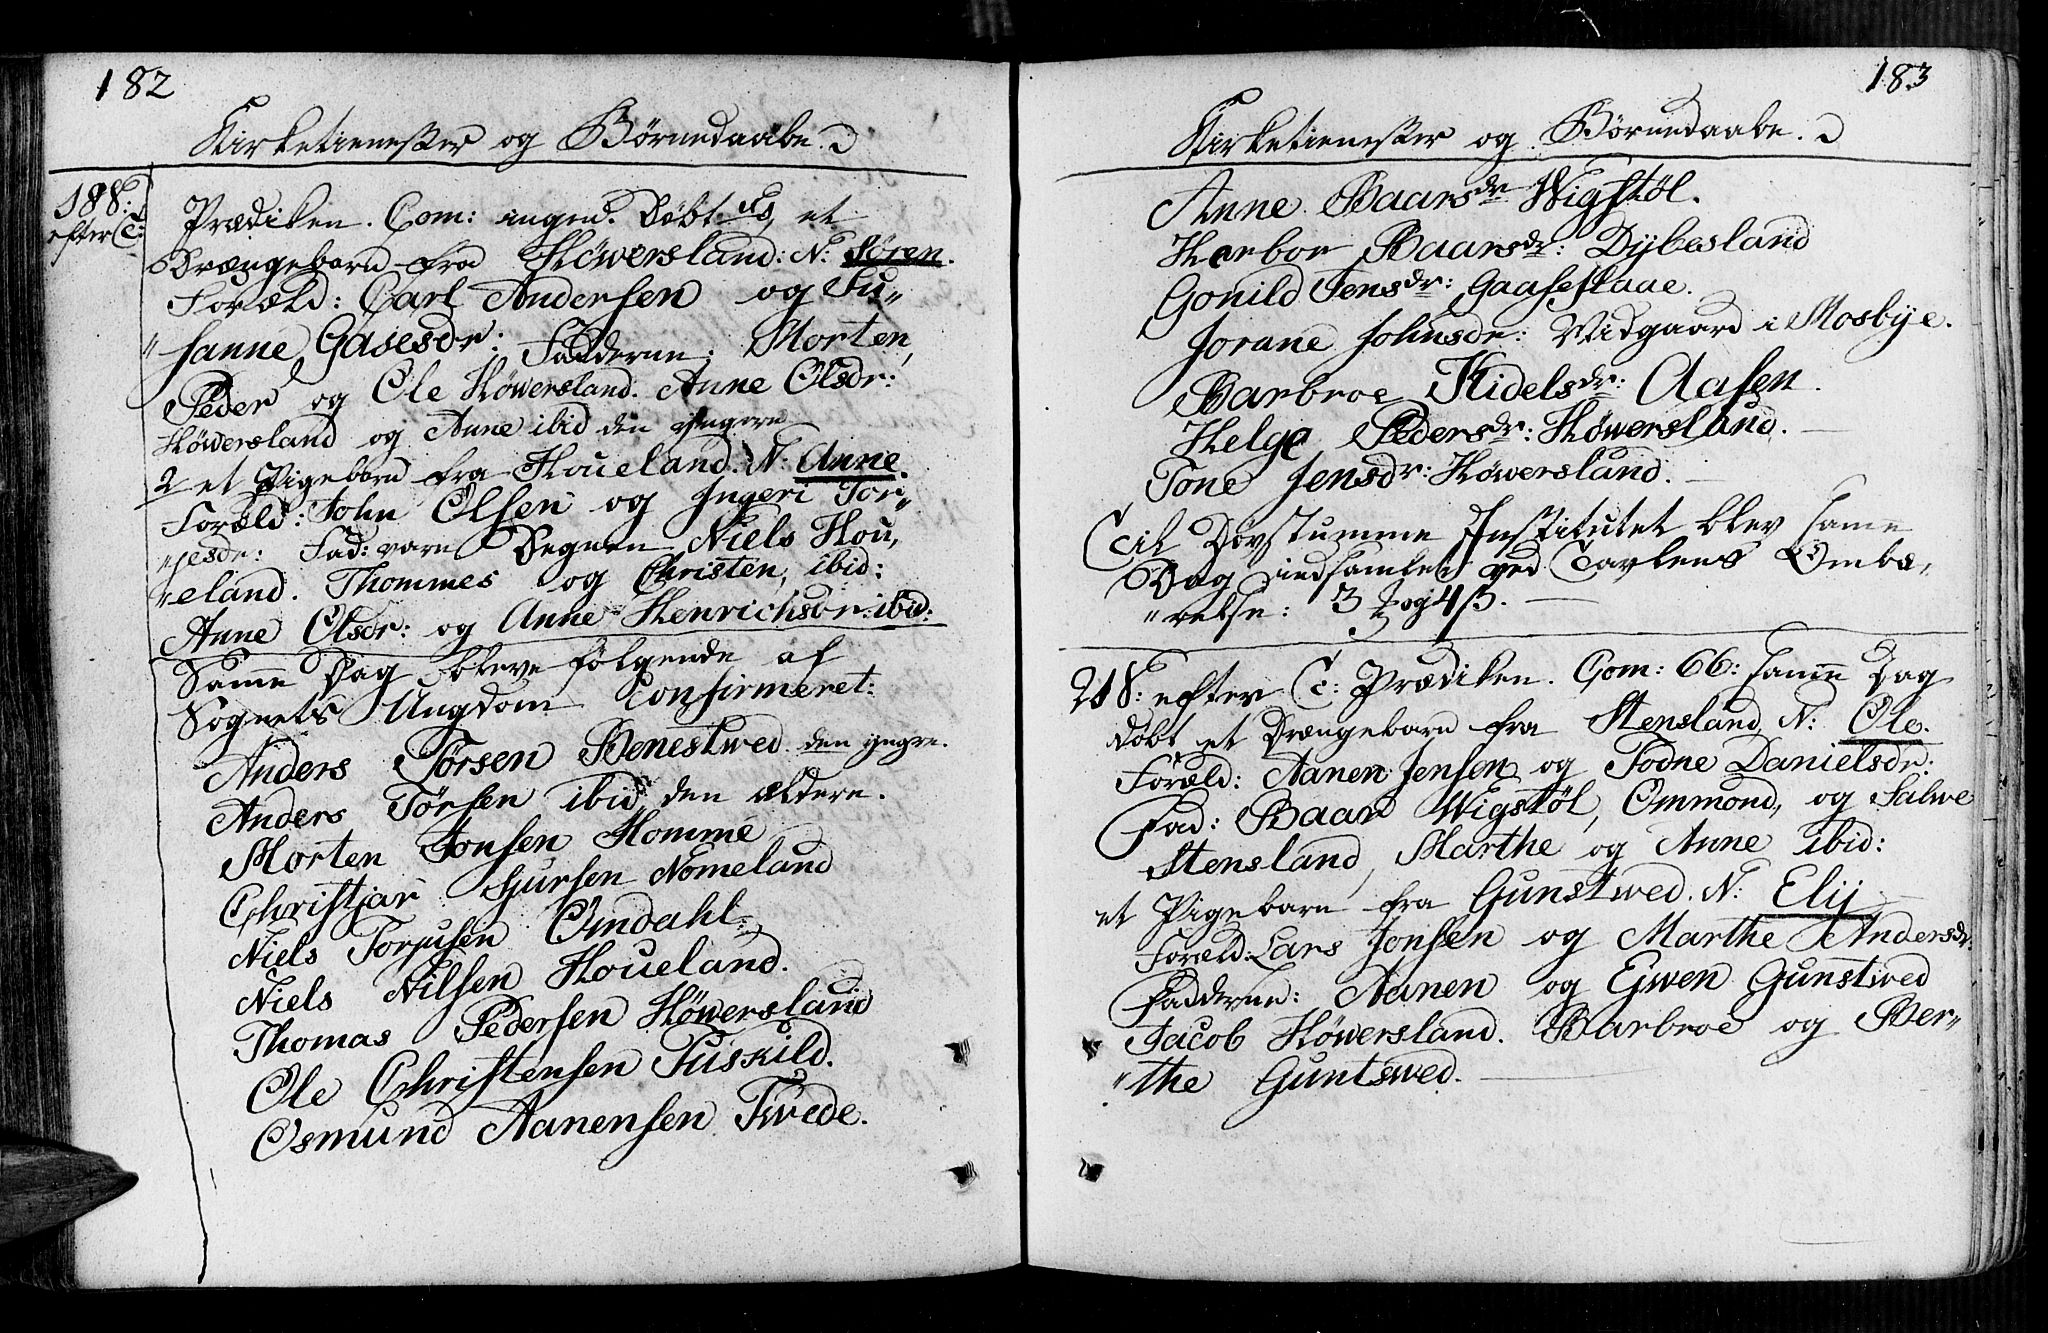 182
Kirketienester og Børnedaabe.
18 S:
efter T:
Prædiken. Com: ingen. Døbt et
Drængebarn fra Höwersland: N: Sören.
Foræld: Carl Andersen og Su„
„sanne Gasesdr: Fadderne: Morten,
Peder og Ole Höwersland. Anne Olsdr:
Höwersland og Anne ibid den yngere
2 et Pigebarn fra Houeland. N: Anne.
Foræld: John Olsen og Ingeri Tor„
„jesdr: Fad: vare Degnen Niels Hou„
„eland. Thommes og Christen, ibid:
Anne Olsdr: og Anne Henrichsdr: ibid:
Samme Dag bleve følgende af
Sognets Ungdom Confirmeret:
Anders Törsen Benestwed den yngre.
Anders Törsen ibid den ældere.
Morten Jonsen Homme
Christjar Sjursen Nomeland
Niels Torjusen Omdahl.
Niels Nilsen Houeland.
Thomas Pedersen Höwersland
Ole Christensen Tuskild.
Osmund Aanensen Twede.
183
Kirketienester og Børnedaabe.
Anne Baarsdr Wigstöl.
Karboe Baarsdr: Dybesland
Gonild Jensdr: Gaaseflaae.
Jorane Johnsdr: Midgaard i Mosbye.
Barbroe Kidelsdr: Aasen.
Helge Pedersdr: Höwersland.
Tone Jensdr: Höwersland.
Til Døvstumme Institutet blev same
Dag indsamlet ved Tavlens Ombæ„
„relse: 3 og 4 ß.
21 S: efter T: Prædiken. Com: 66: samme Dag
døbt et Drængebarn fra Stensland N: Ole.
Foræld: Aanen Jensen og Todne Danielsdr:
Fad: Baar Wigstöl, Ommond, og Salwe
Stensland, Marthe og Anne ibid:
et Pigebarn fra Gunstwed. N: Elij
Foræld: Lars Jonsen og Marthe Andersdr:
Fadderne: Aanen og Ejwen Gunstwed
Jacob Höwersland. Barbroe og Ber„
„the Guntswed.